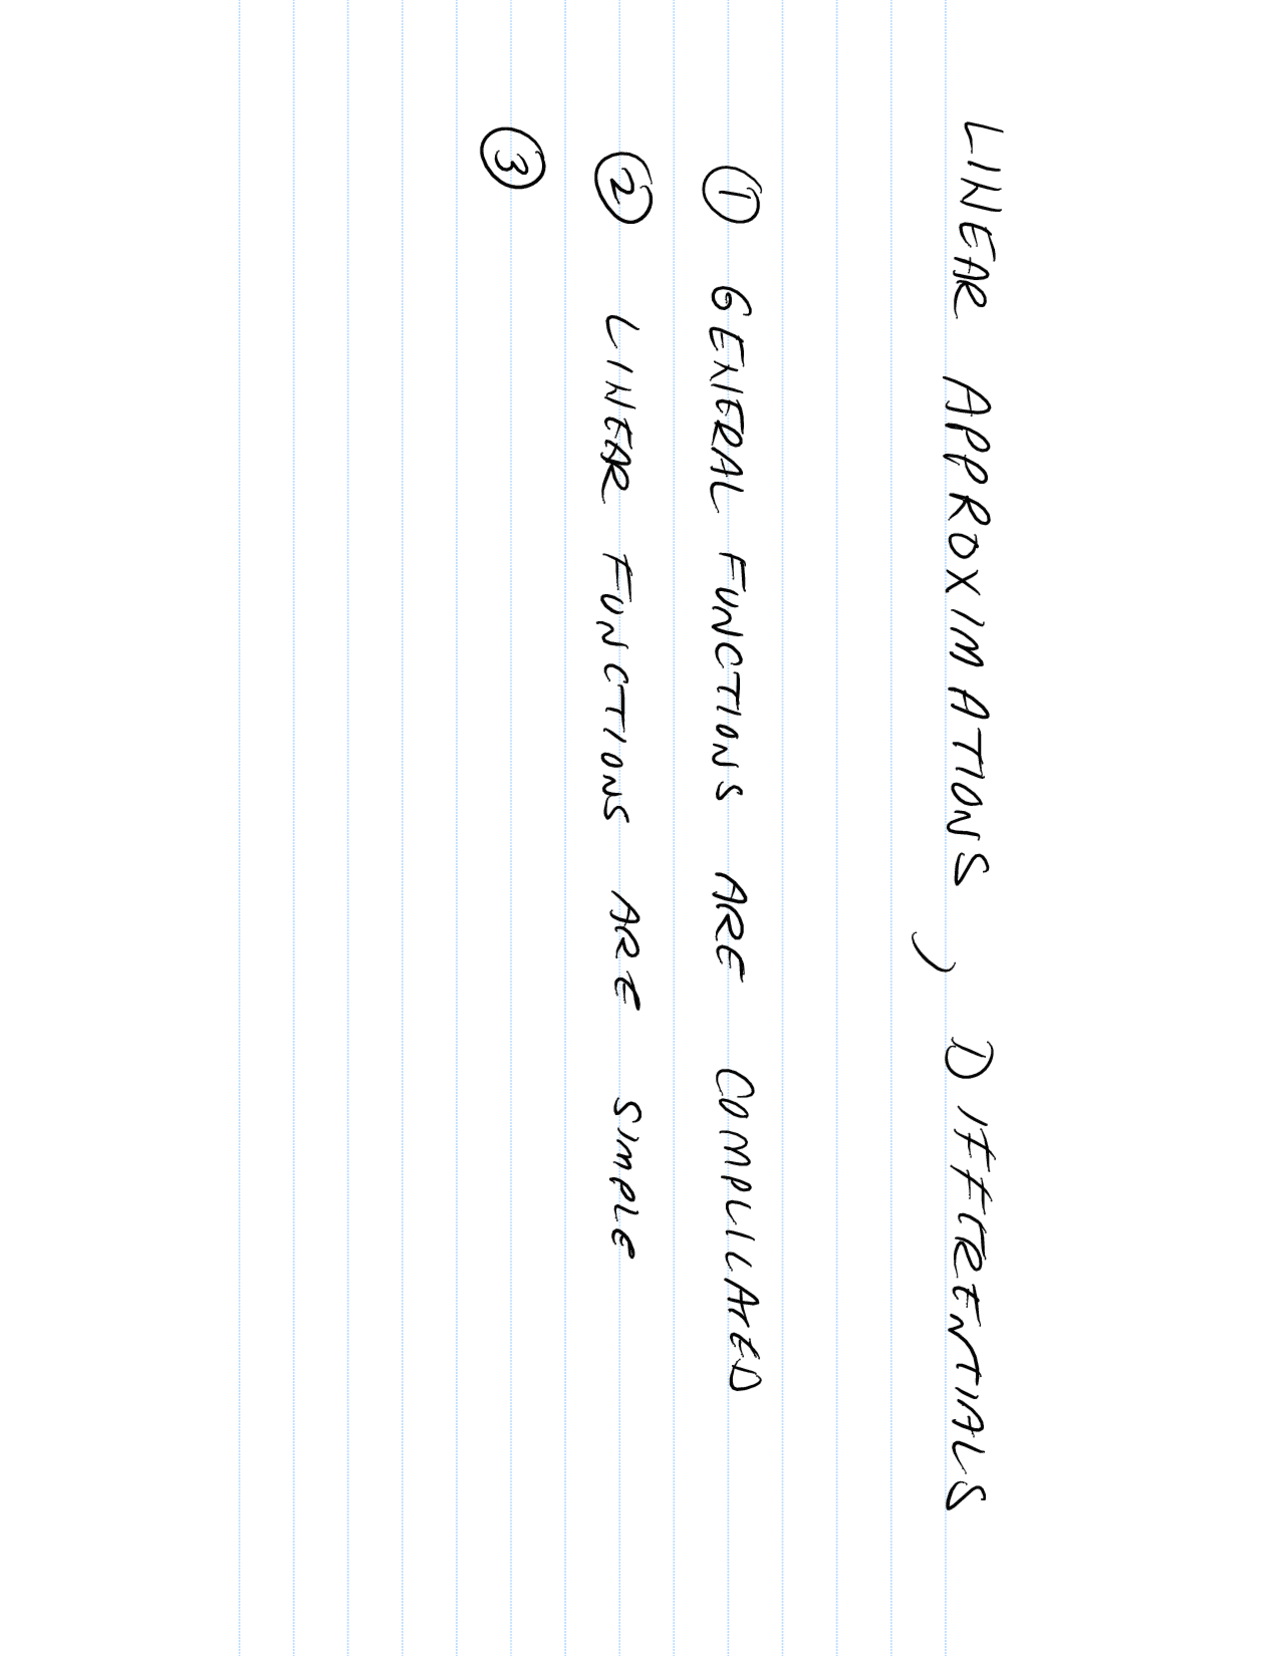 LINEAR APPROXIMATIONS, DIFFERENTIALS
① GENERAL FUNCTIONS ARE COMPLICATED
② LINEAR FUNCTIONS ARE SIMPLE
③